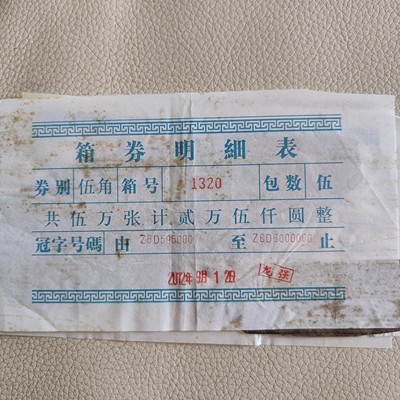 箱券明細表
券别 伍角 箱号 1320 包数 伍
共伍万张计贰万伍仟圆整
冠字号碼 由 至 止
2012年9月12日